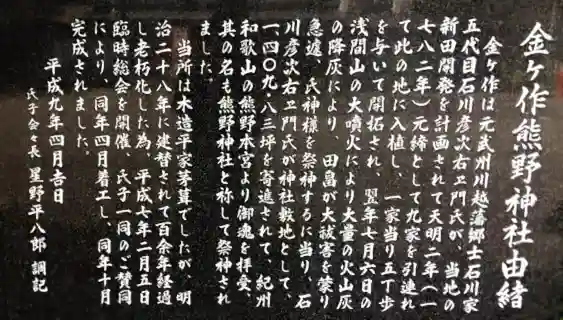 金ヶ作熊野神社由緒
金ヶ作は元武州川越藩郷士石川家
五代目石川彦次右ヱ門氏が、当地の
新田開発を計画されて天明二年(一
七八二年)元締として九家を引連れ
て此の地に入植し、一家当り五丁歩
を与いて開拓され 翌年七月六日の
浅間山の大噴火により大量の火山灰
の降灰により、田畠が大被害を蒙り
急遽、氏神様を祭神するに当り、石
川彦次右ヱ門氏が神社敷地として、
一、四〇九・八三坪を寄進されて、紀州
和歌山の熊野本宮より御魂を拝受、
其の名も熊野神社と称して祭神され
ました。
当所は木造平家茅葺でしたが、明
治二十八年に建替されて百余年経過
し老朽化した為、平成七年二月五日
臨時総会を開催、氏子一同のご賛同
により、同年四月着工し、同年十月
完成されました。
平成九年四月吉日
氏子会々長 星野平八郎 調記